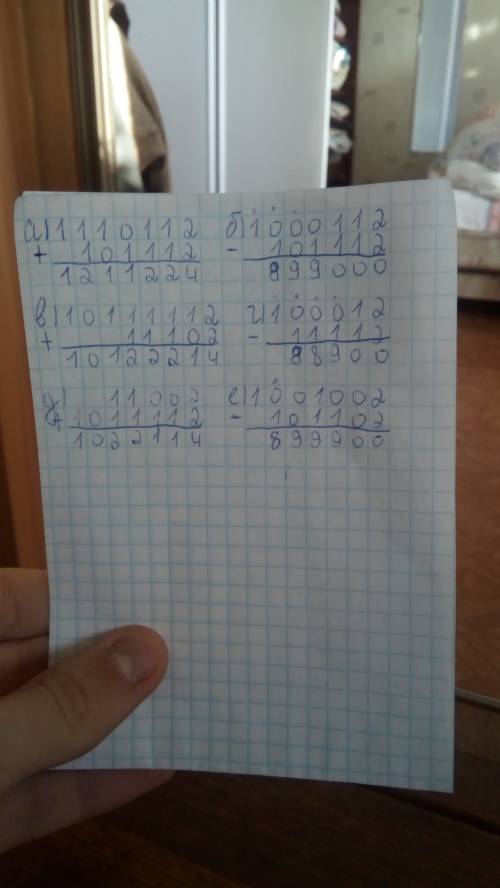 а) 1110112 б) 1000112
+ 101112 - 101112
1211224 899000
в) 10111112 г) 100012
+ 11102 - 11112
10122214 88900
д) 11002 е) 1001002
+ 1011112 - 101102
1022114 899900